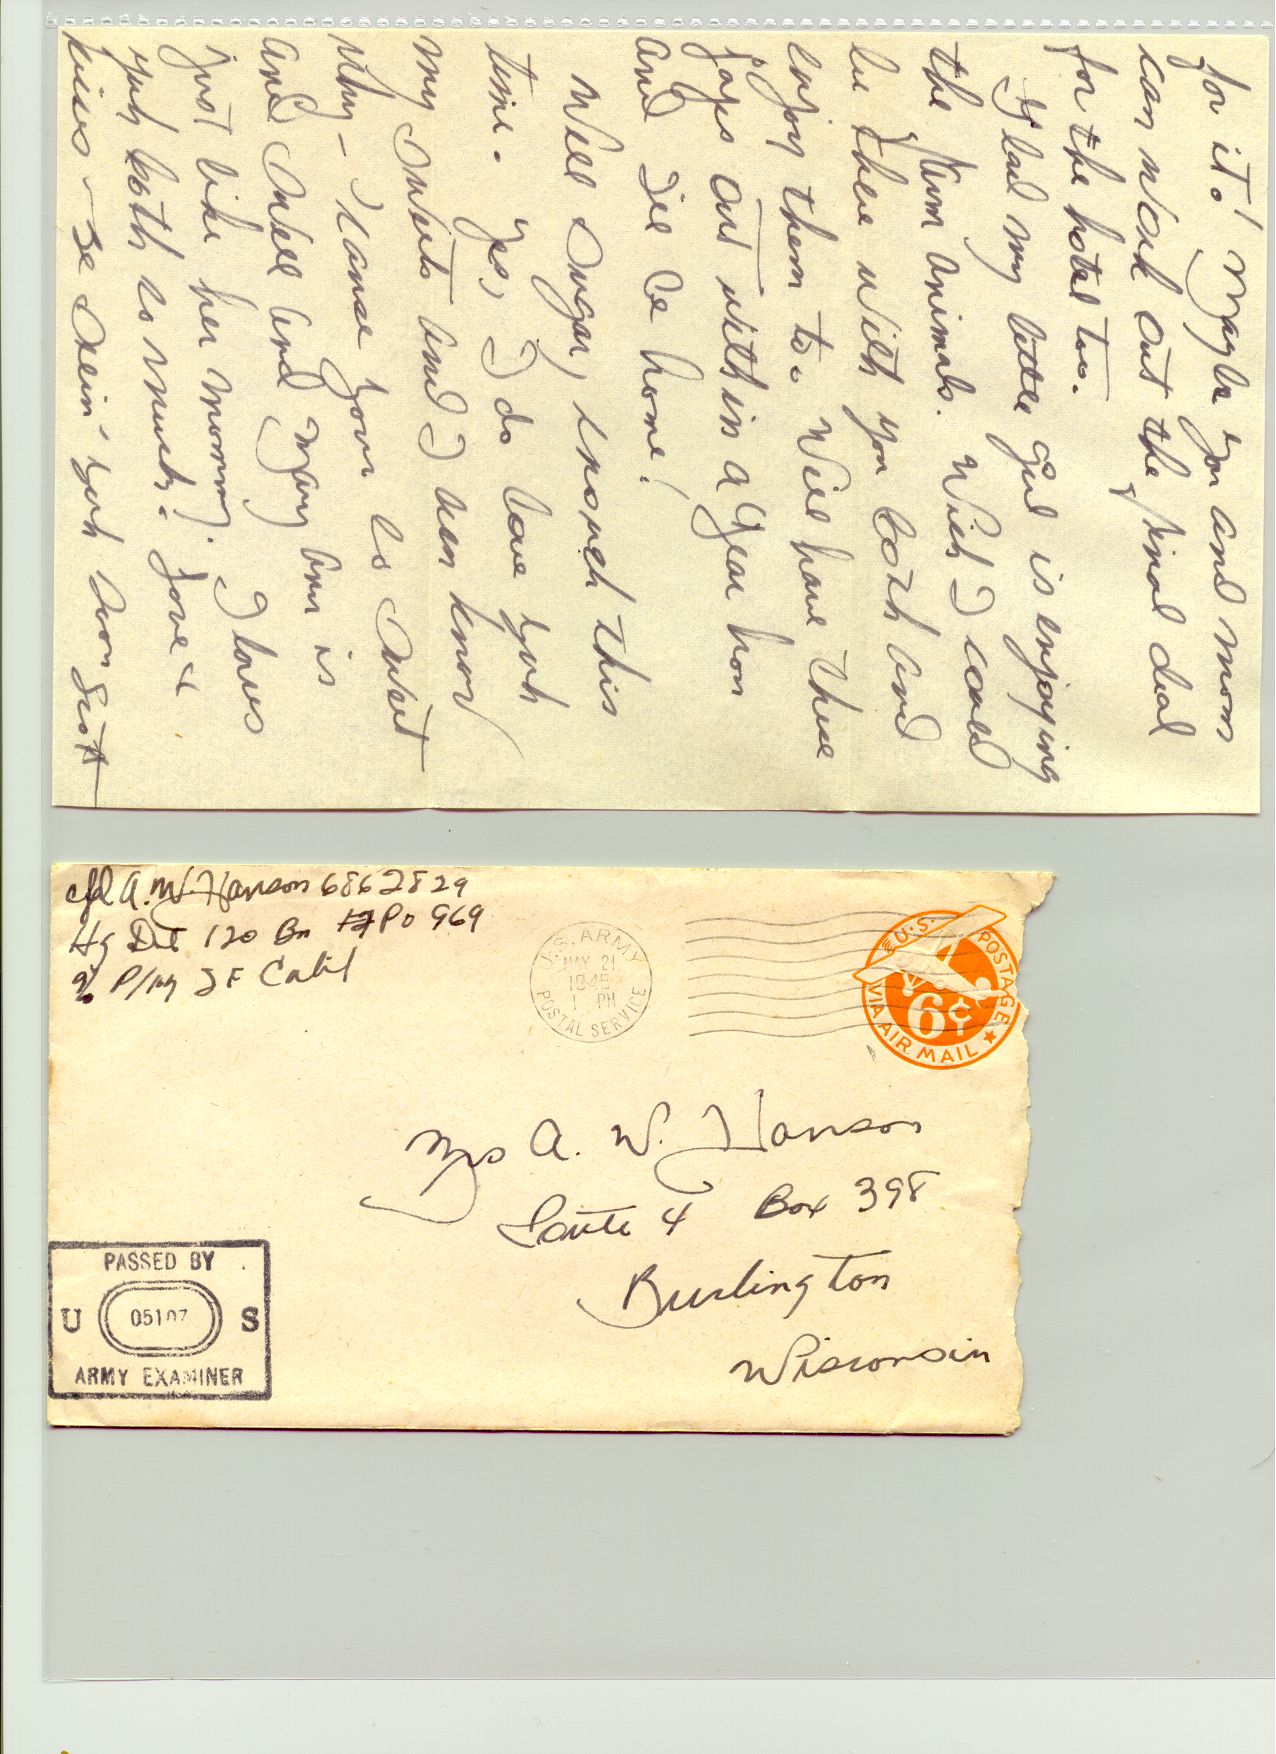 for it! Maybe you and mom
can work out the final deal
for the hotel too.
Glad my little girl is enjoying
the farm animals. Wish I could
be there with you both and
enjoy them too. Will have these
out within a year hon
and I'll be home!
Well Sugar, enough this
time. Yes, I do love yuh
my sweets and I know
Why - 'cause your so sweet
and swell and Mary Ann is
just like her mommy. I loves
yuh both so much. Love &
kisses - be seein' yuh hon Scott
Cpl A. W. Hanson 6862829
Hq Det 120 Bn APO 969
% P/M SF Calif
U.S. ARMY
MAY 21
1945
1 PM
POSTAL SERVICE
U.S. POSTAGE
6¢
VIA AIR MAIL
Mrs A. W. Hanson
Route 4 Box 398
Burlington
Wisconsin
PASSED BY
U 05107 S
ARMY EXAMINER